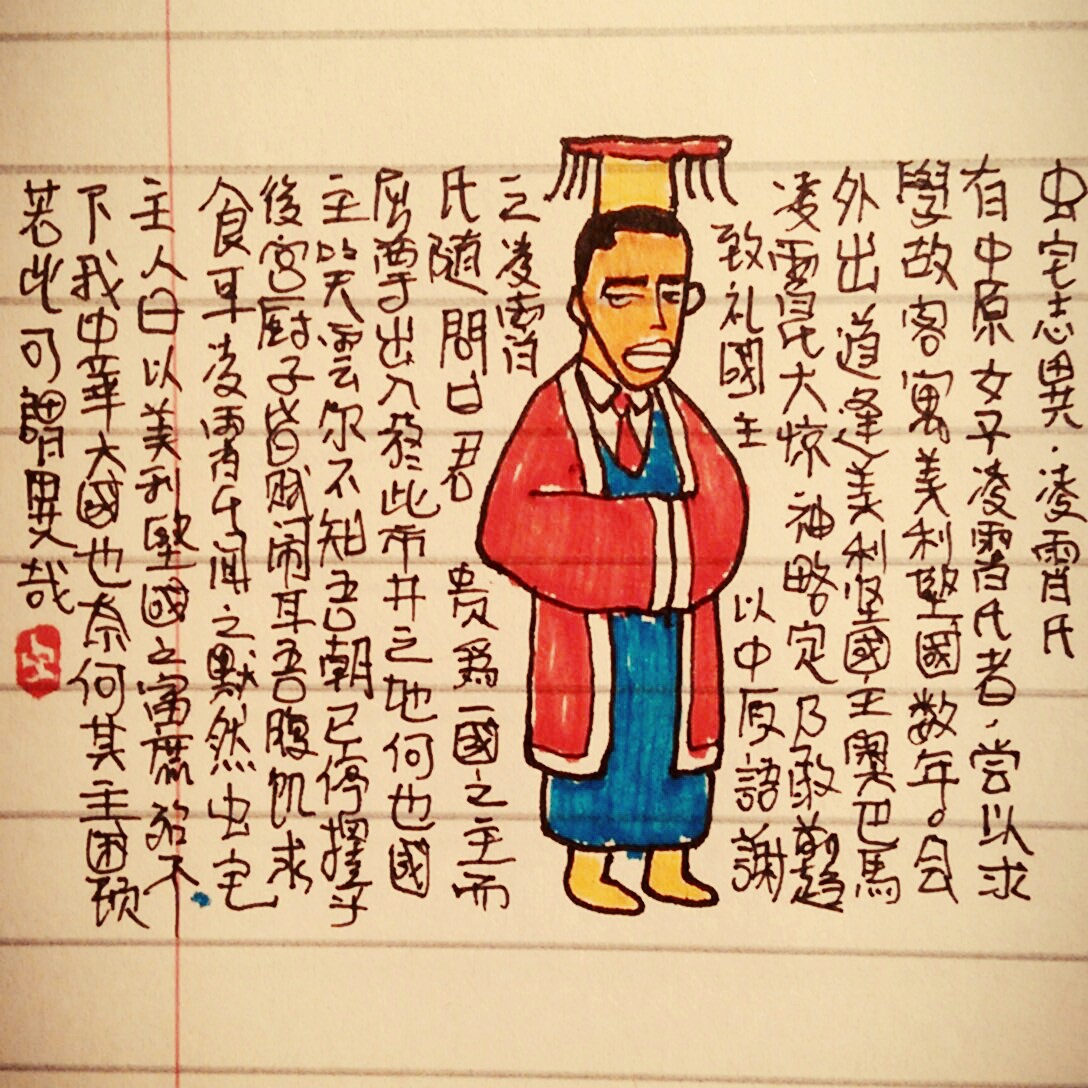 虫宅志異·凌霄氏
有中原女子凌霄氏者，尝以求
學故客寓美利堅國数年。会
外出道逢美利坚國主奥巴馬
凌霄氏大惊神略定乃敢趋
致礼國主
以中原語謝
之凌霄
氏随問曰君
貴為一國之主而
屈尊出入於此市井之地何也國
主笑雲尔不知吾朝已停擺乎
後宮厨子皆赋闲耳吾腹饥求
食耳凌霄氏闻之默然虫宅
主人曰以美利堅國之富庶猶不
下我中華大國也奈何其主困顿
若此可謂異哉